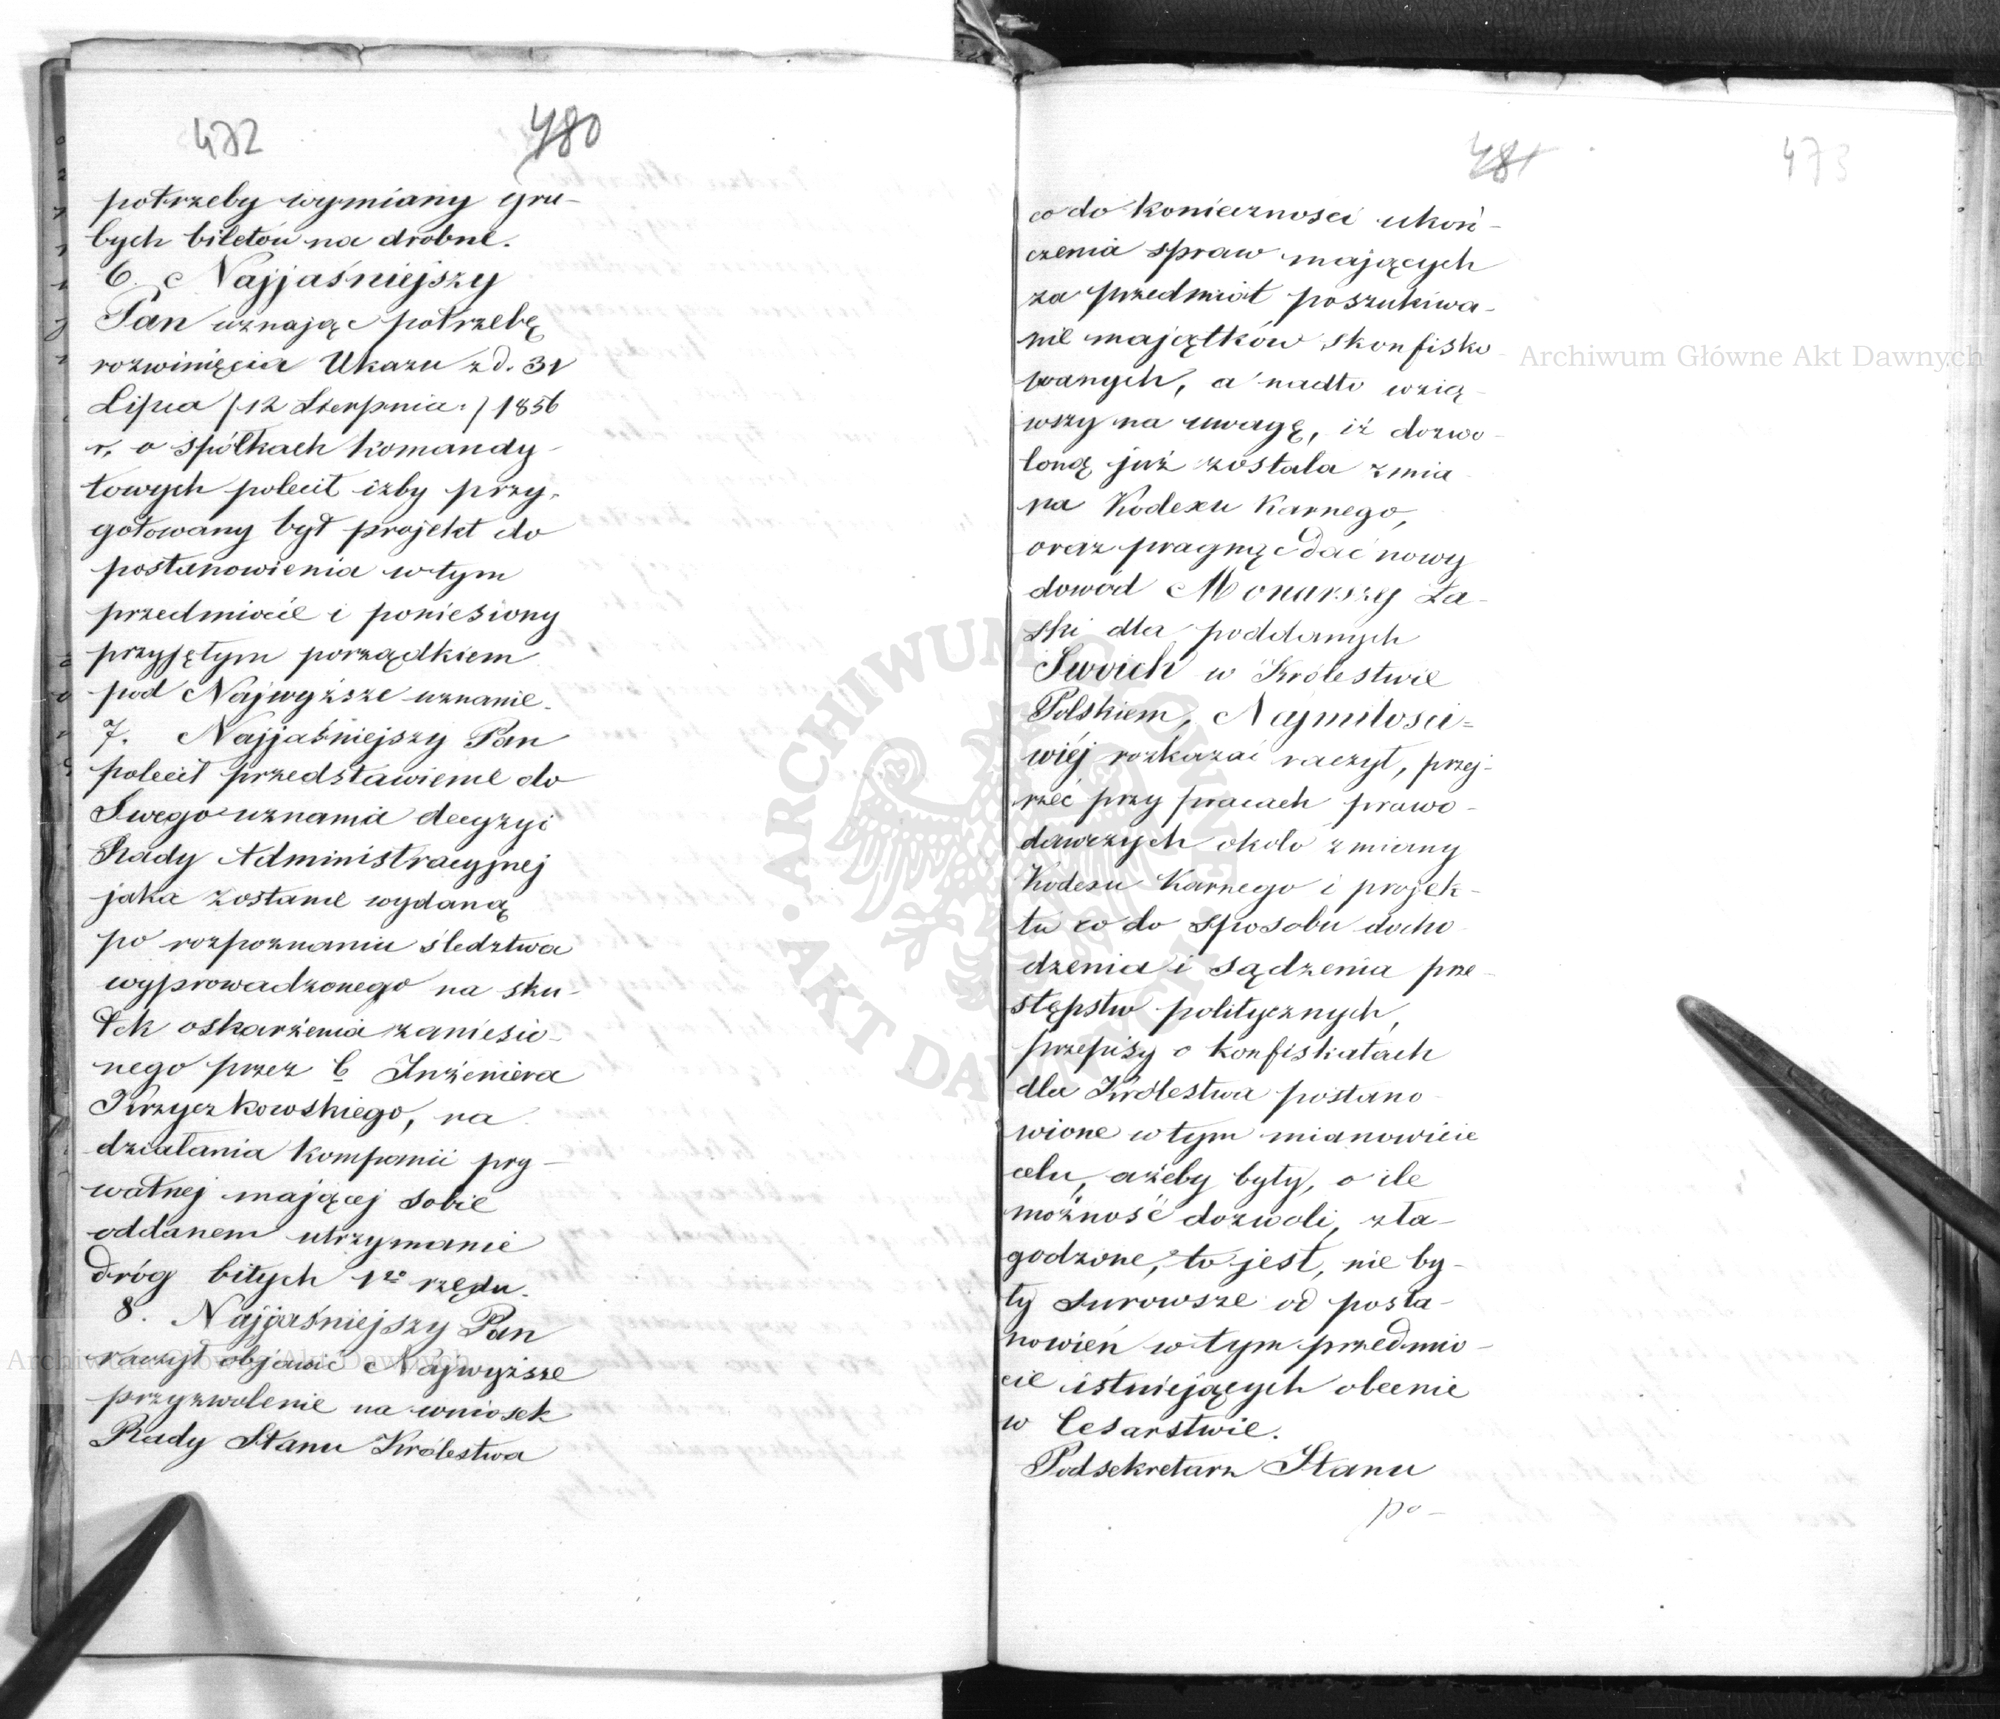 472 480
potrzeby wymiany gru-
bych biletów na drobne.
6. Najjaśniejszy
Pan uznając potrzebę
rozwinięcia Ukazu z d. 31
Lipca /12 Sierpnia:/ 1856
r. o spółkach komandy-
towych polecił izby przy-
gotowany był projekt do
postanowienia w tym
przedmiocie i poniesiony
przyjętym porządkiem
pod Najwyższe uznanie.
7. Najjaśniejszy Pan
polecił przedstawienie do
Swego uznania decyzyi
Rady Administracyjnej
jaka zostanie wydaną
po rozpoznaniu śledztwa
wyprowadzonego na sku-
tek oskarżenia zaniesio-
nego przez b Inżeniera
Krzyczkowskiego, na
działania kompanii pry-
watnej mającej sobie
oddanem utrzymanie
dróg bitych 1go rzędu.
8. Najjaśniejszy Pan
raczył objawić Najwyższe
przyzwolenie na wniosek
Rady Stanu Królestwa
481 473
co do konieczności ukoń-
czenia spraw mających
za przedmiot poszukiwa-
nie majątków skonfisko-
wanych, a nadto wzią-
wszy na uwagę, iż dozwo-
loną już została zmia-
na Kodexu Karnego,
oraz pragnąc dać nowy
dowód Monarszej Ła-
ski dla poddanych
Swoich w Królestwie
Polskiem, Najmiłości=
wiéj rozkazać raczył, przej-
rzéć przy pracach prawo-
dawczych około zmiany
Kodexu Karnego i projek-
tu co do sposobu docho-
dzenia i sądzenia prze-
stępstw politycznych,
przepisy o konfiskatach
dla Królestwa postano-
wione w tym mianowicie
celu, ażeby były, o ile
możność dozwoli, zła-
godzone, to jest, nie by-
ły surowsze od posta-
nowień w tym przedmio-
cie istniejących obecnie
w Cesarstwie.
Podsekretarz Stanu
po-
Archiwum Główne Akt Dawnych
Archiwum Główne Akt Dawnych
ARCHIWUM GŁÓWNE · AKT DAWNYCH ·